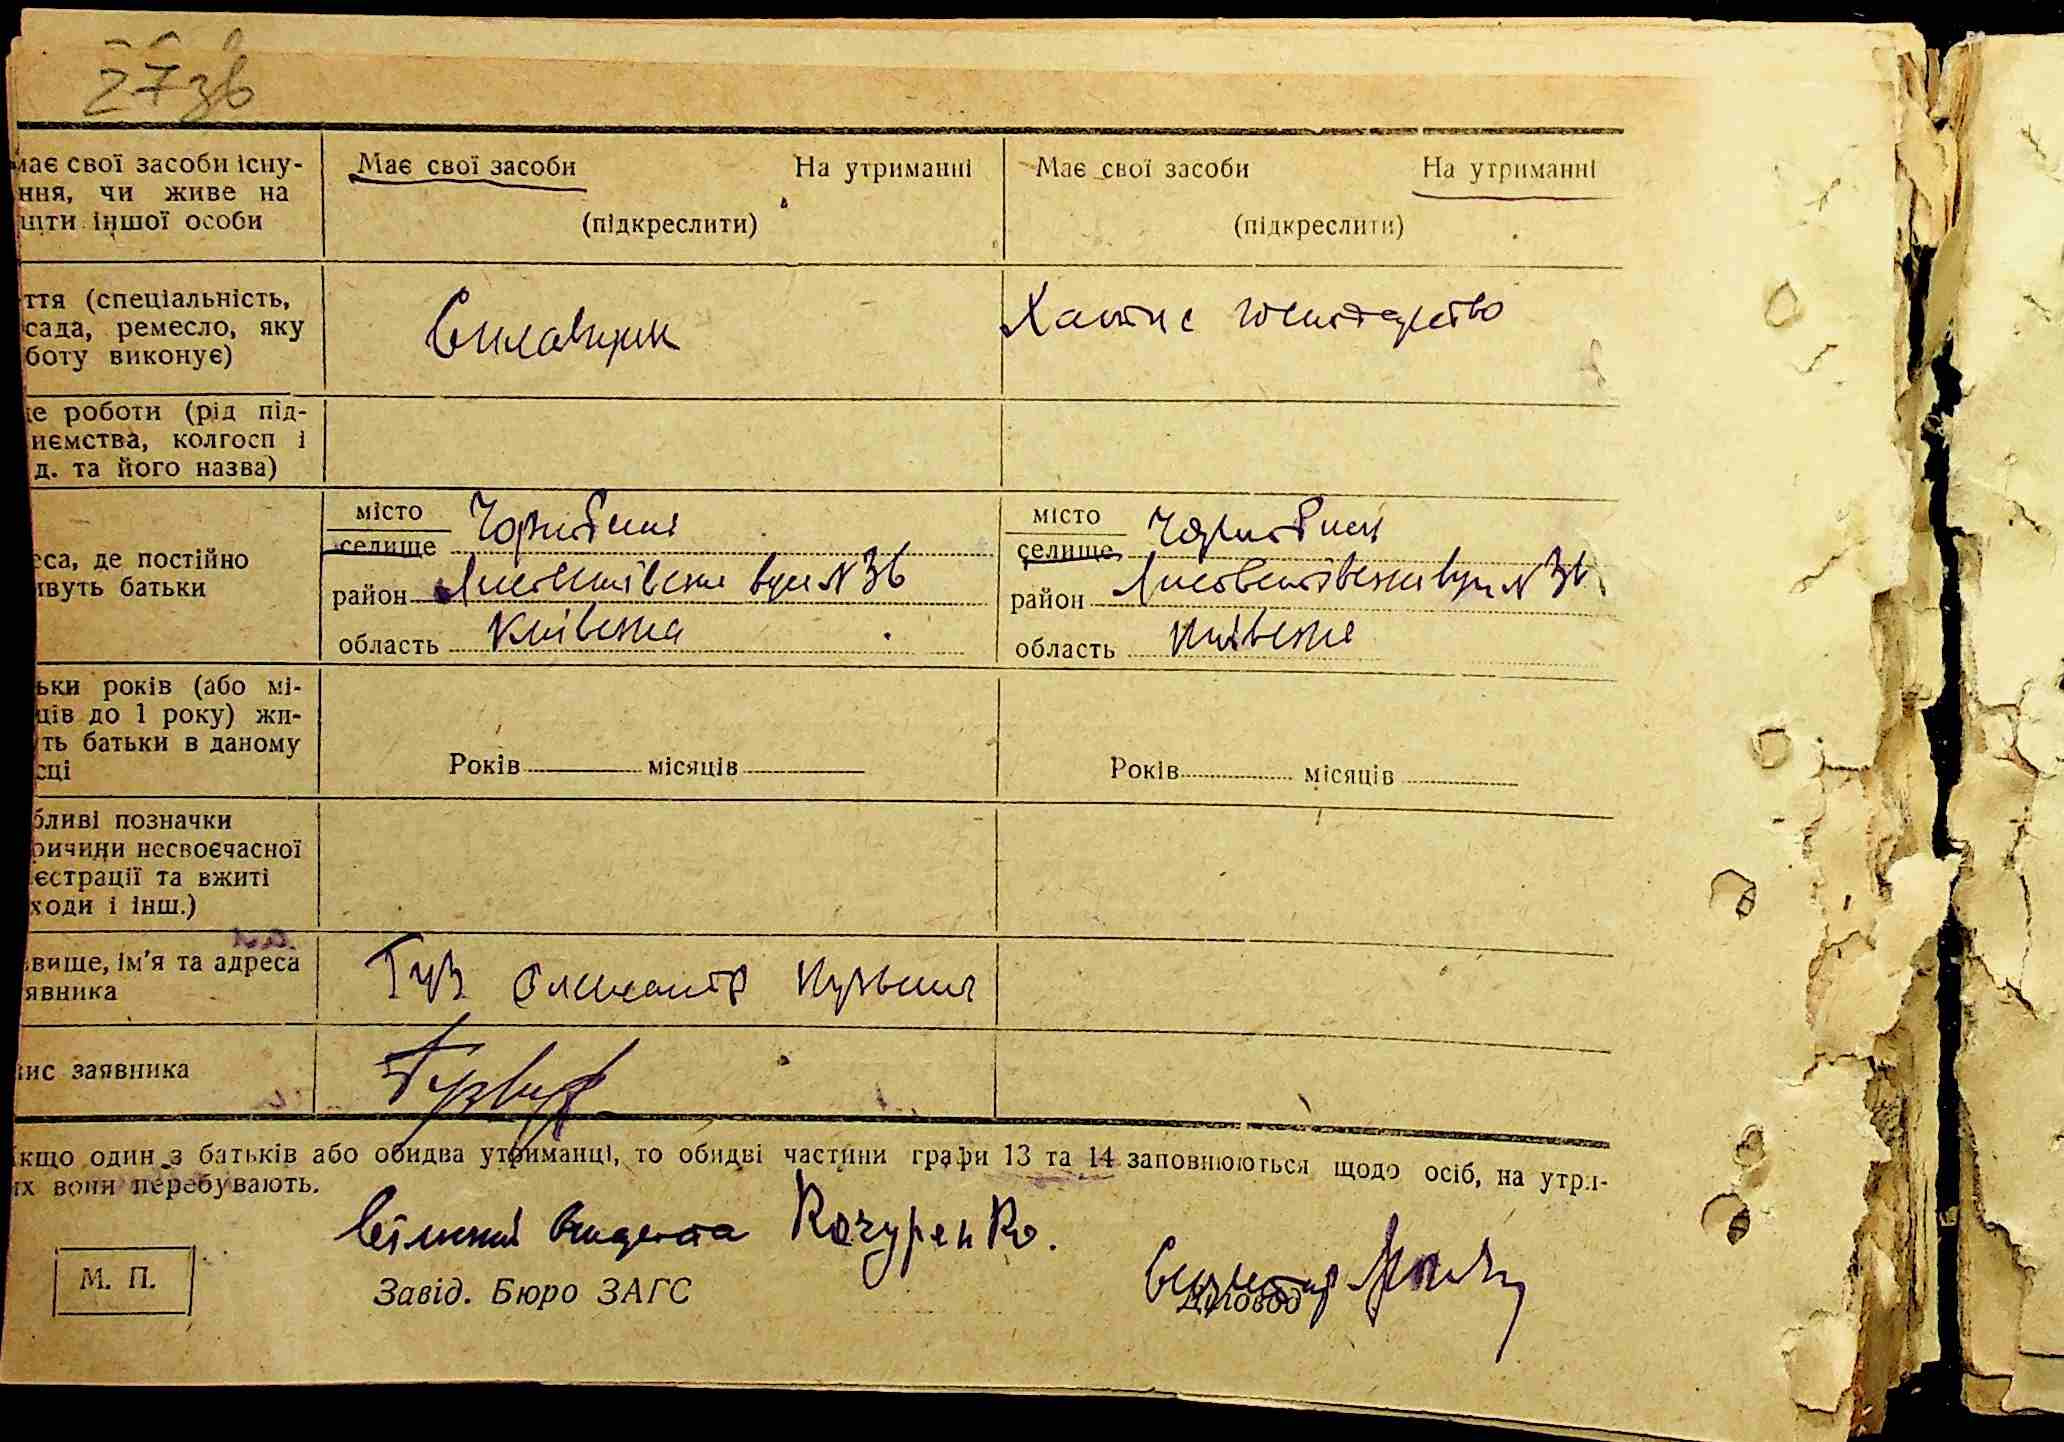 27 зв
має свої засоби існу-
ння, чи живе на
шти іншої особи
Має свої засоби На утриманні
(підкреслити)
Має свої засоби На утриманні
(підкреслити)
ття (спеціальність,
сада, ремесло, яку
боту виконує)
Хатнє господарство
це роботи (рід під-
иємства, колгосп і
д. та його назва)
еса, де постійно
ивуть батьки
місто
селище Чорнобиль
район вул N 36
область Київська
місто
селище Чорнобиль
район вул N 36
область Київська
ьки років (або мі-
ців до 1 року) жи-
уть батьки в даному
сці
Років місяців
Років місяців
бливі позначки
ричини несвоєчасної
єстрації та вжиті
ходи і інш.)
вище, ім'я та адреса
явника
Гуз Олександр Кузьмич
ис заявника
кщо один з батьків або обидва утриманці, то обидві частини графи 13 та 14 заповнюються щодо осіб, на утри-
их вони перебувають.
Кочуренко.
М. П.
Завід. Бюро ЗАГС
Діловод